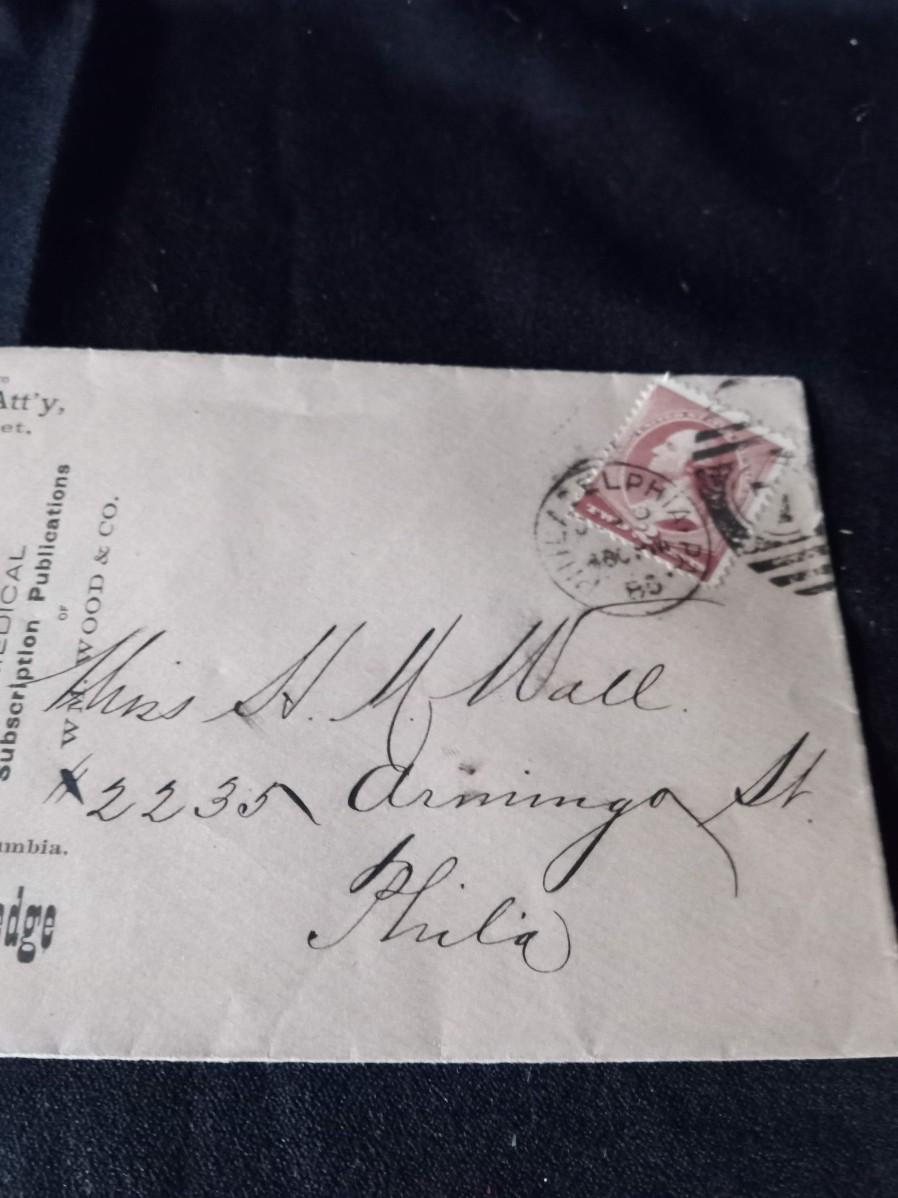 Att'y,
et.
EDICAL
Subscription Publications
OF
WM. WOOD & CO.
umbia.
edge
PHILADELPHIA P
86
Miss H. M. Wall.
# 2235 Armingo St
Phila